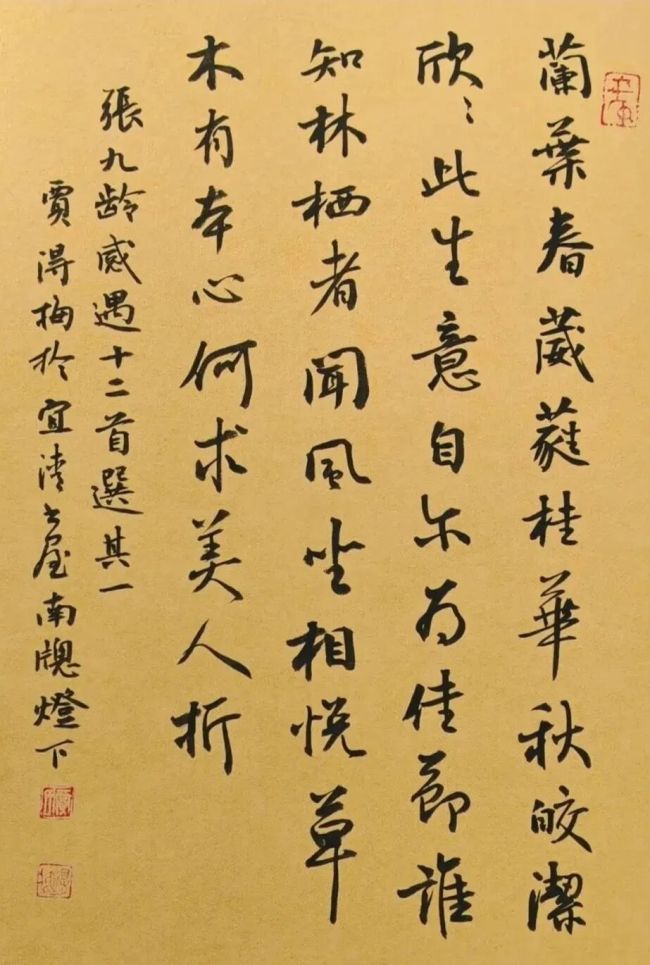 蘭葉春葳蕤桂華秋皎潔
欣〻此生意自尔為佳節誰
知林栖者聞風坐相悅草
木有本心何求美人折
張九齡感遇十二首選其一
賈得梅於宜清書屋南牕燈下